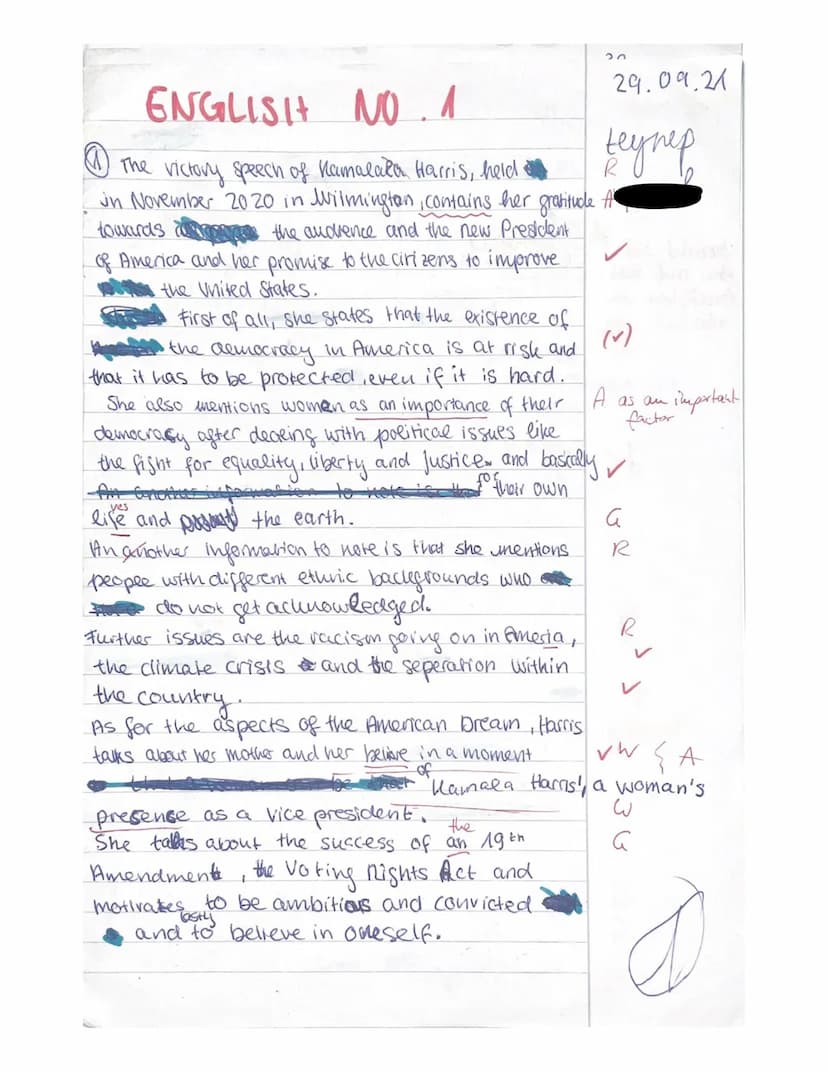 29.09.21
ENGLISH NO. 1
① The victory speech of Kamala Harris, held R
in November 2020 in Wilmington, contains her gratitude A
towards the audience and the new President
of America and her promise to the citizens to improve ✓
the United States.
First of all, she states that the existence of (✓)
the democracy in America is at risk and
that it has to be protected, even if it is hard.
She also mentions women as an importance of their A as an important factor
democracy after dealing with political issues like
the fight for equality, liberty and justice and basically ✓
for their own
life and the earth. ves G
An another information to note is that she mentions R
people with different ethnic backgrounds who
do not get acknowledged.
Further issues are the racism going on in Ameria, R
the climate crisis and the seperation within ✓
the country. ✓
As for the aspects of the American Dream, Harris
talks about her mother and her believe in a moment ✓ W { A
of Kamala Harris', a woman's
presense as a vice president. W
She talks about the success of an 19th the G
Amendment, the Voting Rights Act and
motivates to be ambitious and convicted
and lastly to believe in oneself.